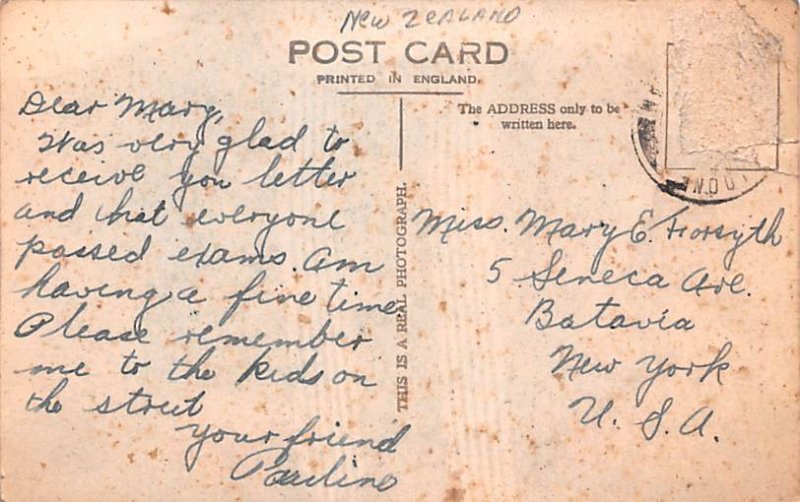 New Zealand
POST CARD
PRINTED IN ENGLAND.
The ADDRESS only to be
written here.
Dear Mary,
Was very glad to
receive you letter
and that everyone
passed exams. Am
having a fine time
Please remember
me to the kids on
the street
Your friend
Pauline
THIS IS A REAL PHOTOGRAPH.
Miss. Mary E. Forsyth
5 Seneca Ave.
Batavia
New York
U. S. A.